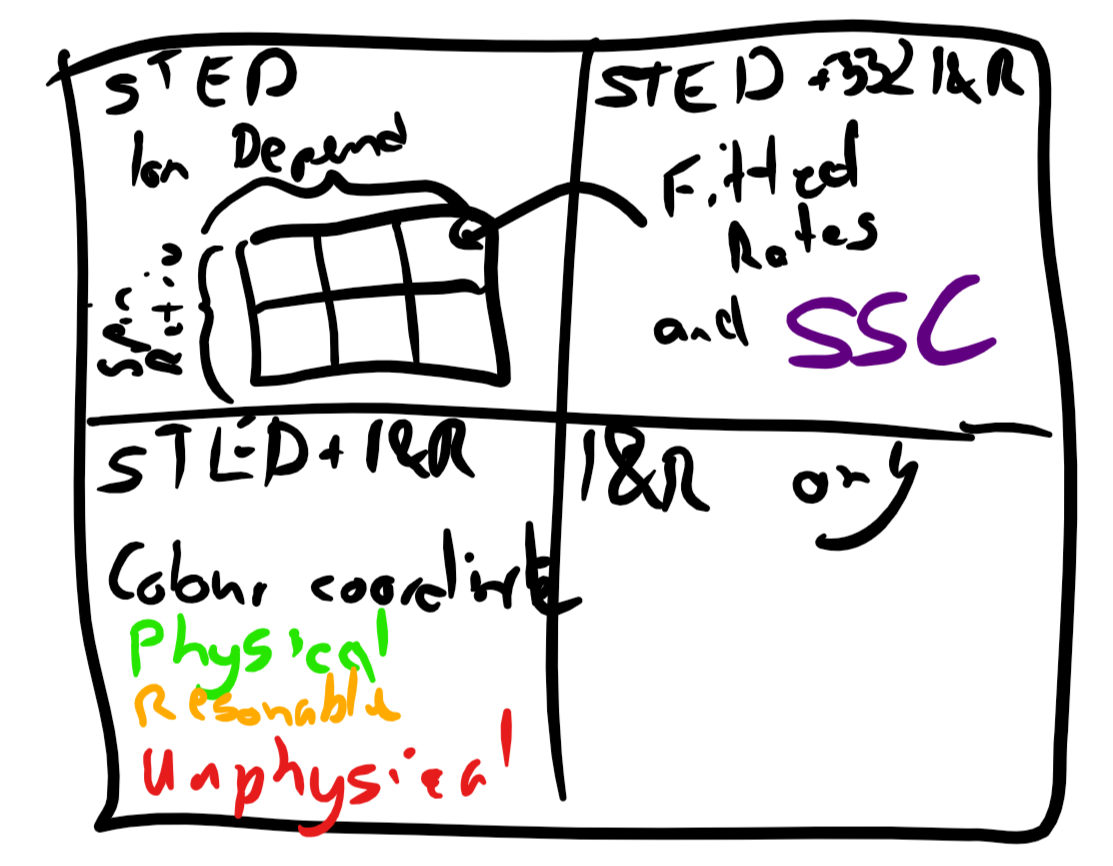 STED
Ion Depend
Spec
Ratio
STED +332 I&R
Fitted
Rates
and SSC
STED + I&R
Colour coordinate
Physical
Resonable
Unphysical
I&R only